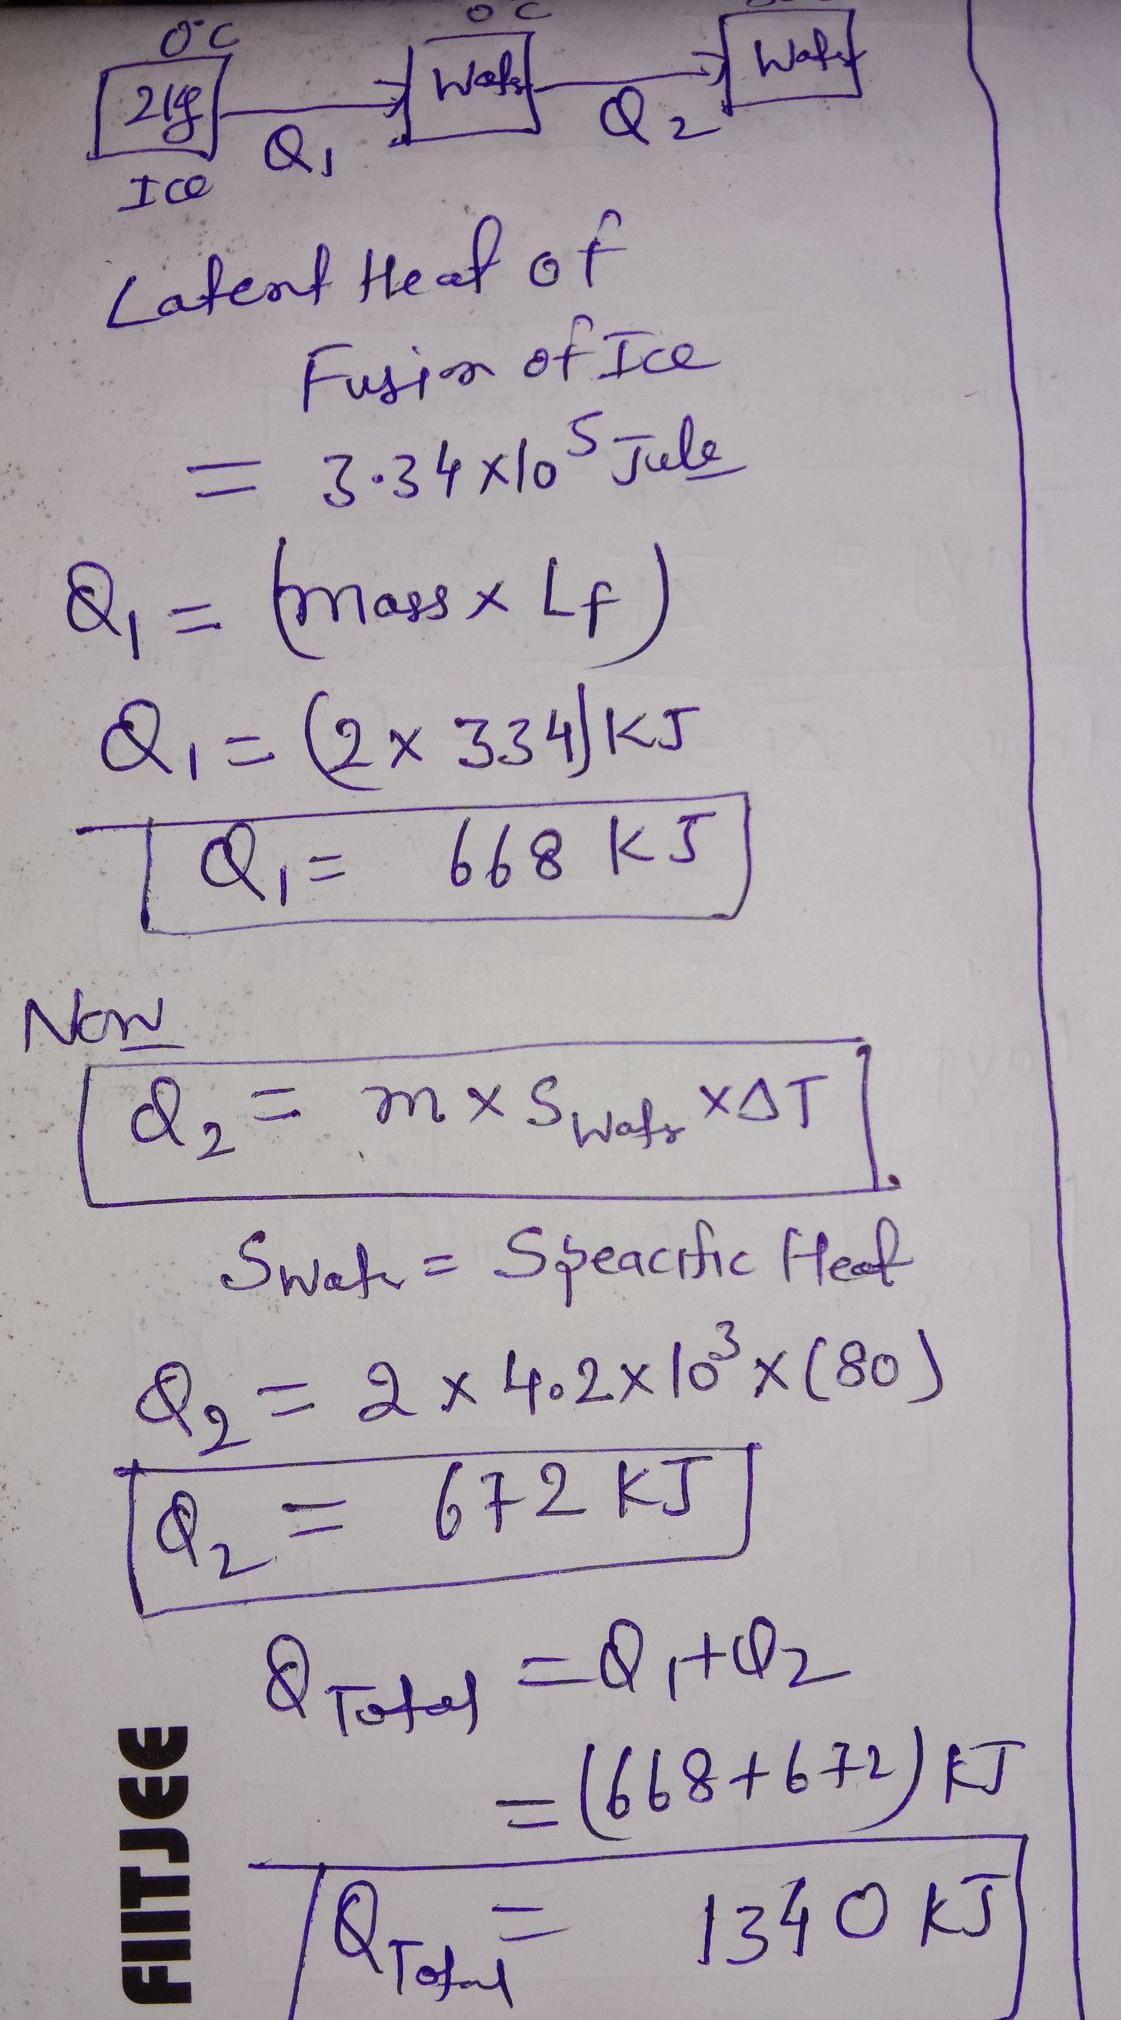 0°C
0°C
2kg
Water
Water
Q₁
Q₂
Ice
Latent Heat of
Fusion of Ice
= 3.34 x 10⁵ Jule
Q₁ = (mass x Lf)
Q₁ = (2 x 334) KJ
Q₁ = 668 KJ
Now
Q₂ = m x S Water x ΔT
S Water = Speacific Heat
Q₂ = 2 x 4.2 x 10³ x (80)
Q₂ = 672 KJ
Q Total = Q₁ + Q₂
= (668 + 672) KJ
Q Total = 1340 KJ
FIITJEE